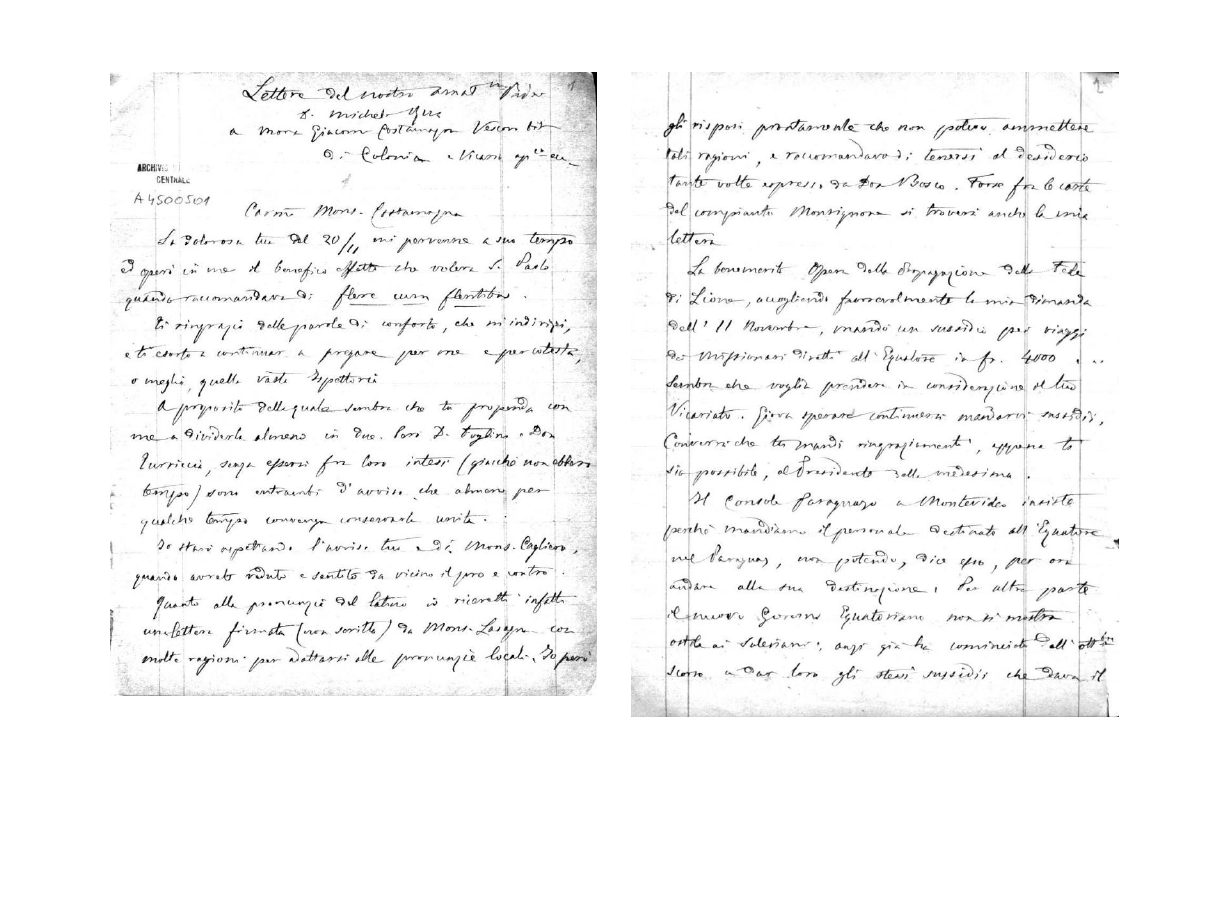 1
Lettere del nostro amat.mo Padre
D. Michele Rua
a Mons Giacomo Costamagna Vescovo tit
di Colonia e Vicario ap.co ecc
ARCHIVIO
CENTRALE
A4500501
Car.mo Mons. Costamagna
La dolorosa tua del 20/11 mi pervenne a suo tempo
ed operò in me il benefico effetto che voleva S. Paolo
quando raccomandava di flere cum flentibus.
Ti ringrazio delle parole di conforto, che mi indirizzi,
e ti esorto a continuar a pregare per me e per cotesta,
o meglio, quella vasta Ispettoria
A proposito della quale sembra che tu propenda con
me a dividerla almeno in due. Però D. Foglino e Don
Turriccia, senza essersi fra loro intesi (giacchè non ebbero
tempo) sono entrambi d'avviso che almeno per
qualche tempo convenga conservarla unita.
Io starò aspettando l'avviso tuo e di Mons. Cagliero,
quando avrete veduto e sentito da vicino il pro e contro.
Quanto alla pronunzia del latino io ricevetti infatti
una lettera firmata (non scritta) da Mons. Lasagna con
molte ragioni per adattarsi alle pronunzie locali. Io però
2
gli risposi prontamente che non poteva ammettere
tali ragioni, e raccomandava di tenersi al desiderio
tante volte espresso da Don Bosco. Forse fra le carte
del compianto Monsignore si troverà anche la mia
lettera
La benemerita Opera della Propagazione della Fede
di Lione, accogliendo favorevolmente la mia domanda
dell' 11 Novembre, mandò un sussidio per viaggi
dei Missionari diretti all' Equatore in fr. 4000 . ..
Sembra che voglia prendere in considerazione il tuo
Vicariato. Giova sperare continuerà mandarvi sussidii,
Converrà che tu mandi ringraziamenti, appena ti
sia possibile, al Presidente della medesima.
Il Console Paraguayo a Montevideo insiste
perchè mandiamo il personale destinato all' Equatore
nel Paraguay, non potendo, dice esso, per ora
andare alla sua destinazione. Per altra parte
il nuovo Governo Equatoriano non si mostra
ostile ai Salesiani; anzi già ha cominciato dall' ott.bre
scorso a dar loro gli stessi sussidii che dava il